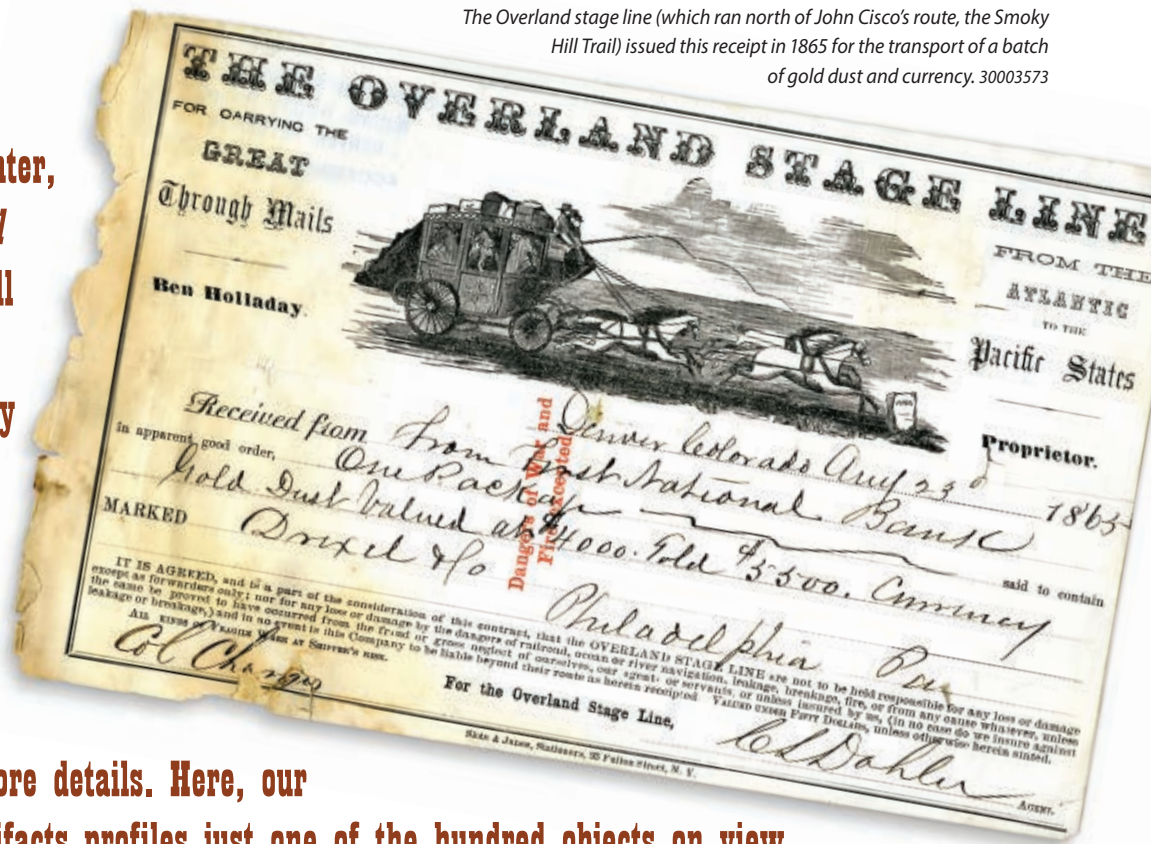 The Overland stage line (which ran north of John Cisco's route, the Smoky
Hill Trail) issued this receipt in 1865 for the transport of a batch
of gold dust and currency. 30003573
THE OVERLAND STAGE LINE
FOR CARRYING THE
GREAT
Through Mails
Ben Holladay.
FROM THE
ATLANTIC
TO THE
Pacific States
Proprietor.
Denver Colorado Aug 23d 1865
Received from From First National Bank
in apparent good order, One Package said to contain
Gold Dust Valued at $4000. Gold $5500. Currency
MARKED Drexel & Co
Philadelphia Pa
Dangers of War and
Fire excepted
IT IS AGREED, and is a part of the consideration of this contract, that the OVERLAND STAGE LINE are not to be held responsible for any loss or damage
except as forwarders only; nor for any loss or damage by the dangers of railroad, ocean or river navigation, leakage, breakage, fire, or from any cause whatever, unless
the same be proved to have occurred from the fraud or gross neglect of ourselves, our agents or servants, or unless insured by us, (in no case do we insure against
leakage or breakage,) and in no event is this Company to be liable beyond their route as herein receipted VALUED UNDER FIFTY DOLLARS, unless otherwise herein stated.
AT SHIPPER'S RISK.
Col Charges
For the Overland Stage Line,
AGENT.
Stationers, Fulton Street, N. Y.
ater,
ll
y
ore details. Here, our
ifacts profiles just one of the hundred objects on view